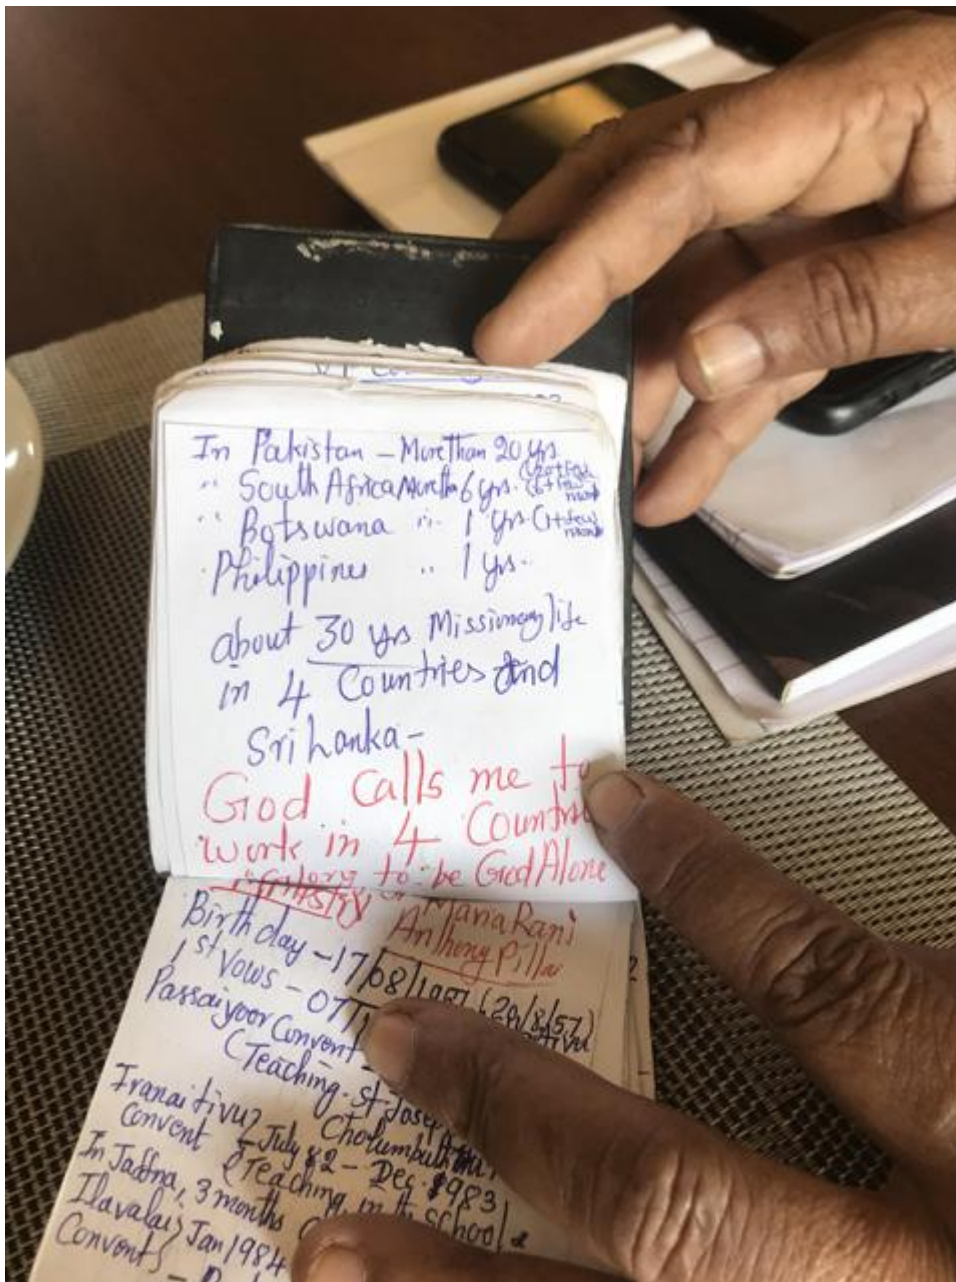 In Pakistan - More Than 20 yrs
" South Africa More Than 6 yrs. (6 + few
" Botswana " 1 yrs (1+few)
Philippines " 1 yrs.
about 30 yrs Missionary life
in 4 Countries and
Sri Lanka -
God calls me to
work in 4 Countries
to be God Alone
Ministry Sr Maria Rani
Anthony Pillai
Birthday - 17/08/1957 (29/8/57)
1st Vows - 07
Passaiyoor Convent
(Teaching. St. Joseph
Iranaitivu July 82 - Dec. 1983
Convent (Teaching in the school
In Jaffna, 3 months
Ilavalai Jan 1984
Convent